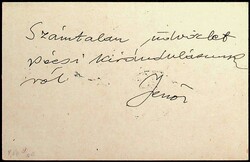 Számtalan üdvözlet
pécsi kirándulásunk
ról
Jenő